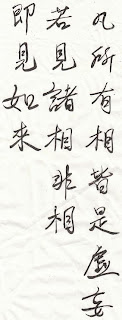 凡所有相皆是虛妄
若見諸相非相
即見如來